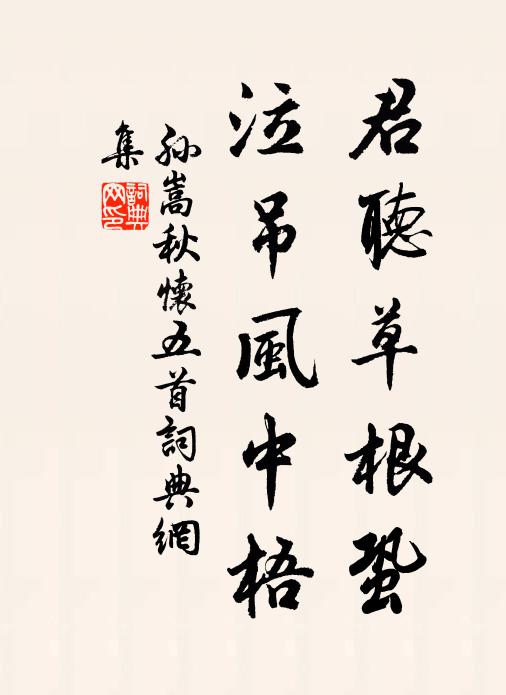 君聽草根蛩
泣吊風中梧
孫嵩秋懷五首詞典網
集
詞典網印